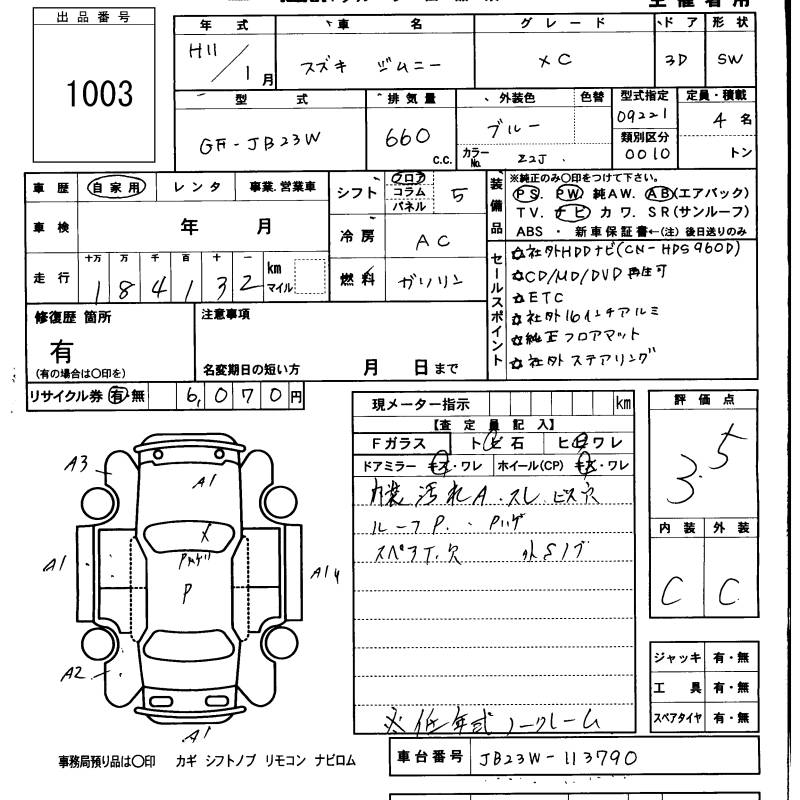 出品番号
1003
年 式
H11／1月
車 名
スズキ ジムニー
グ レ ー ド
XC
ド ア
3D
形 状
SW
型 式
GF-JB23W
排気量
660 c.c.
外装色
ブルー
色替
カラーNo. Z2J
型式指定
09221
類別区分
0010
定員・積載
4 名
トン
車歴 自家用 レンタ 事業.営業車
車検 年 月
走行 十万 万 千 百 十 一
1 8 4 1 3 2 km マイル
シフト フロア コラム パネル 5
冷房 AC
燃料 ガソリン
装備品
※純正のみ〇印をつけて下さい。
PS. PW. 純AW. AB(エアバック)
TV. ナビ カワ. SR(サンルーフ)
ABS ・ 新車保証書←(注)後日送りのみ
セールスポイント
☆社外HDDナビ(CN-HDS960D)
☆CD/MD/DVD再生可
☆ETC
☆社外16インチアルミ
☆純正フロアマット
☆社外ステアリング
修復歴 箇所
有
(有の場合は〇印を)
注意事項
名変期日の短い方 月 日まで
リサイクル券 有 無 6,070円
現メーター指示 km
【査 定 員 記 入】
Fガラス トビ石 ヒビワレ
ドアミラー キズ・ワレ ホイール(CP) キズ・ワレ
内装汚れA.スレ ビス穴
ルーフP.
スペアT.欠
※低年式ノークレーム
評 価 点
3.5
内 装 外 装
C C
ジャッキ 有・無
工 具 有・無
スペアタイヤ 有・無
A3
A1
A1
X
P
A1
A2
A1
事務局預り品は〇印 カギ シフトノブ リモコン ナビロム
車台番号 JB23W-113790